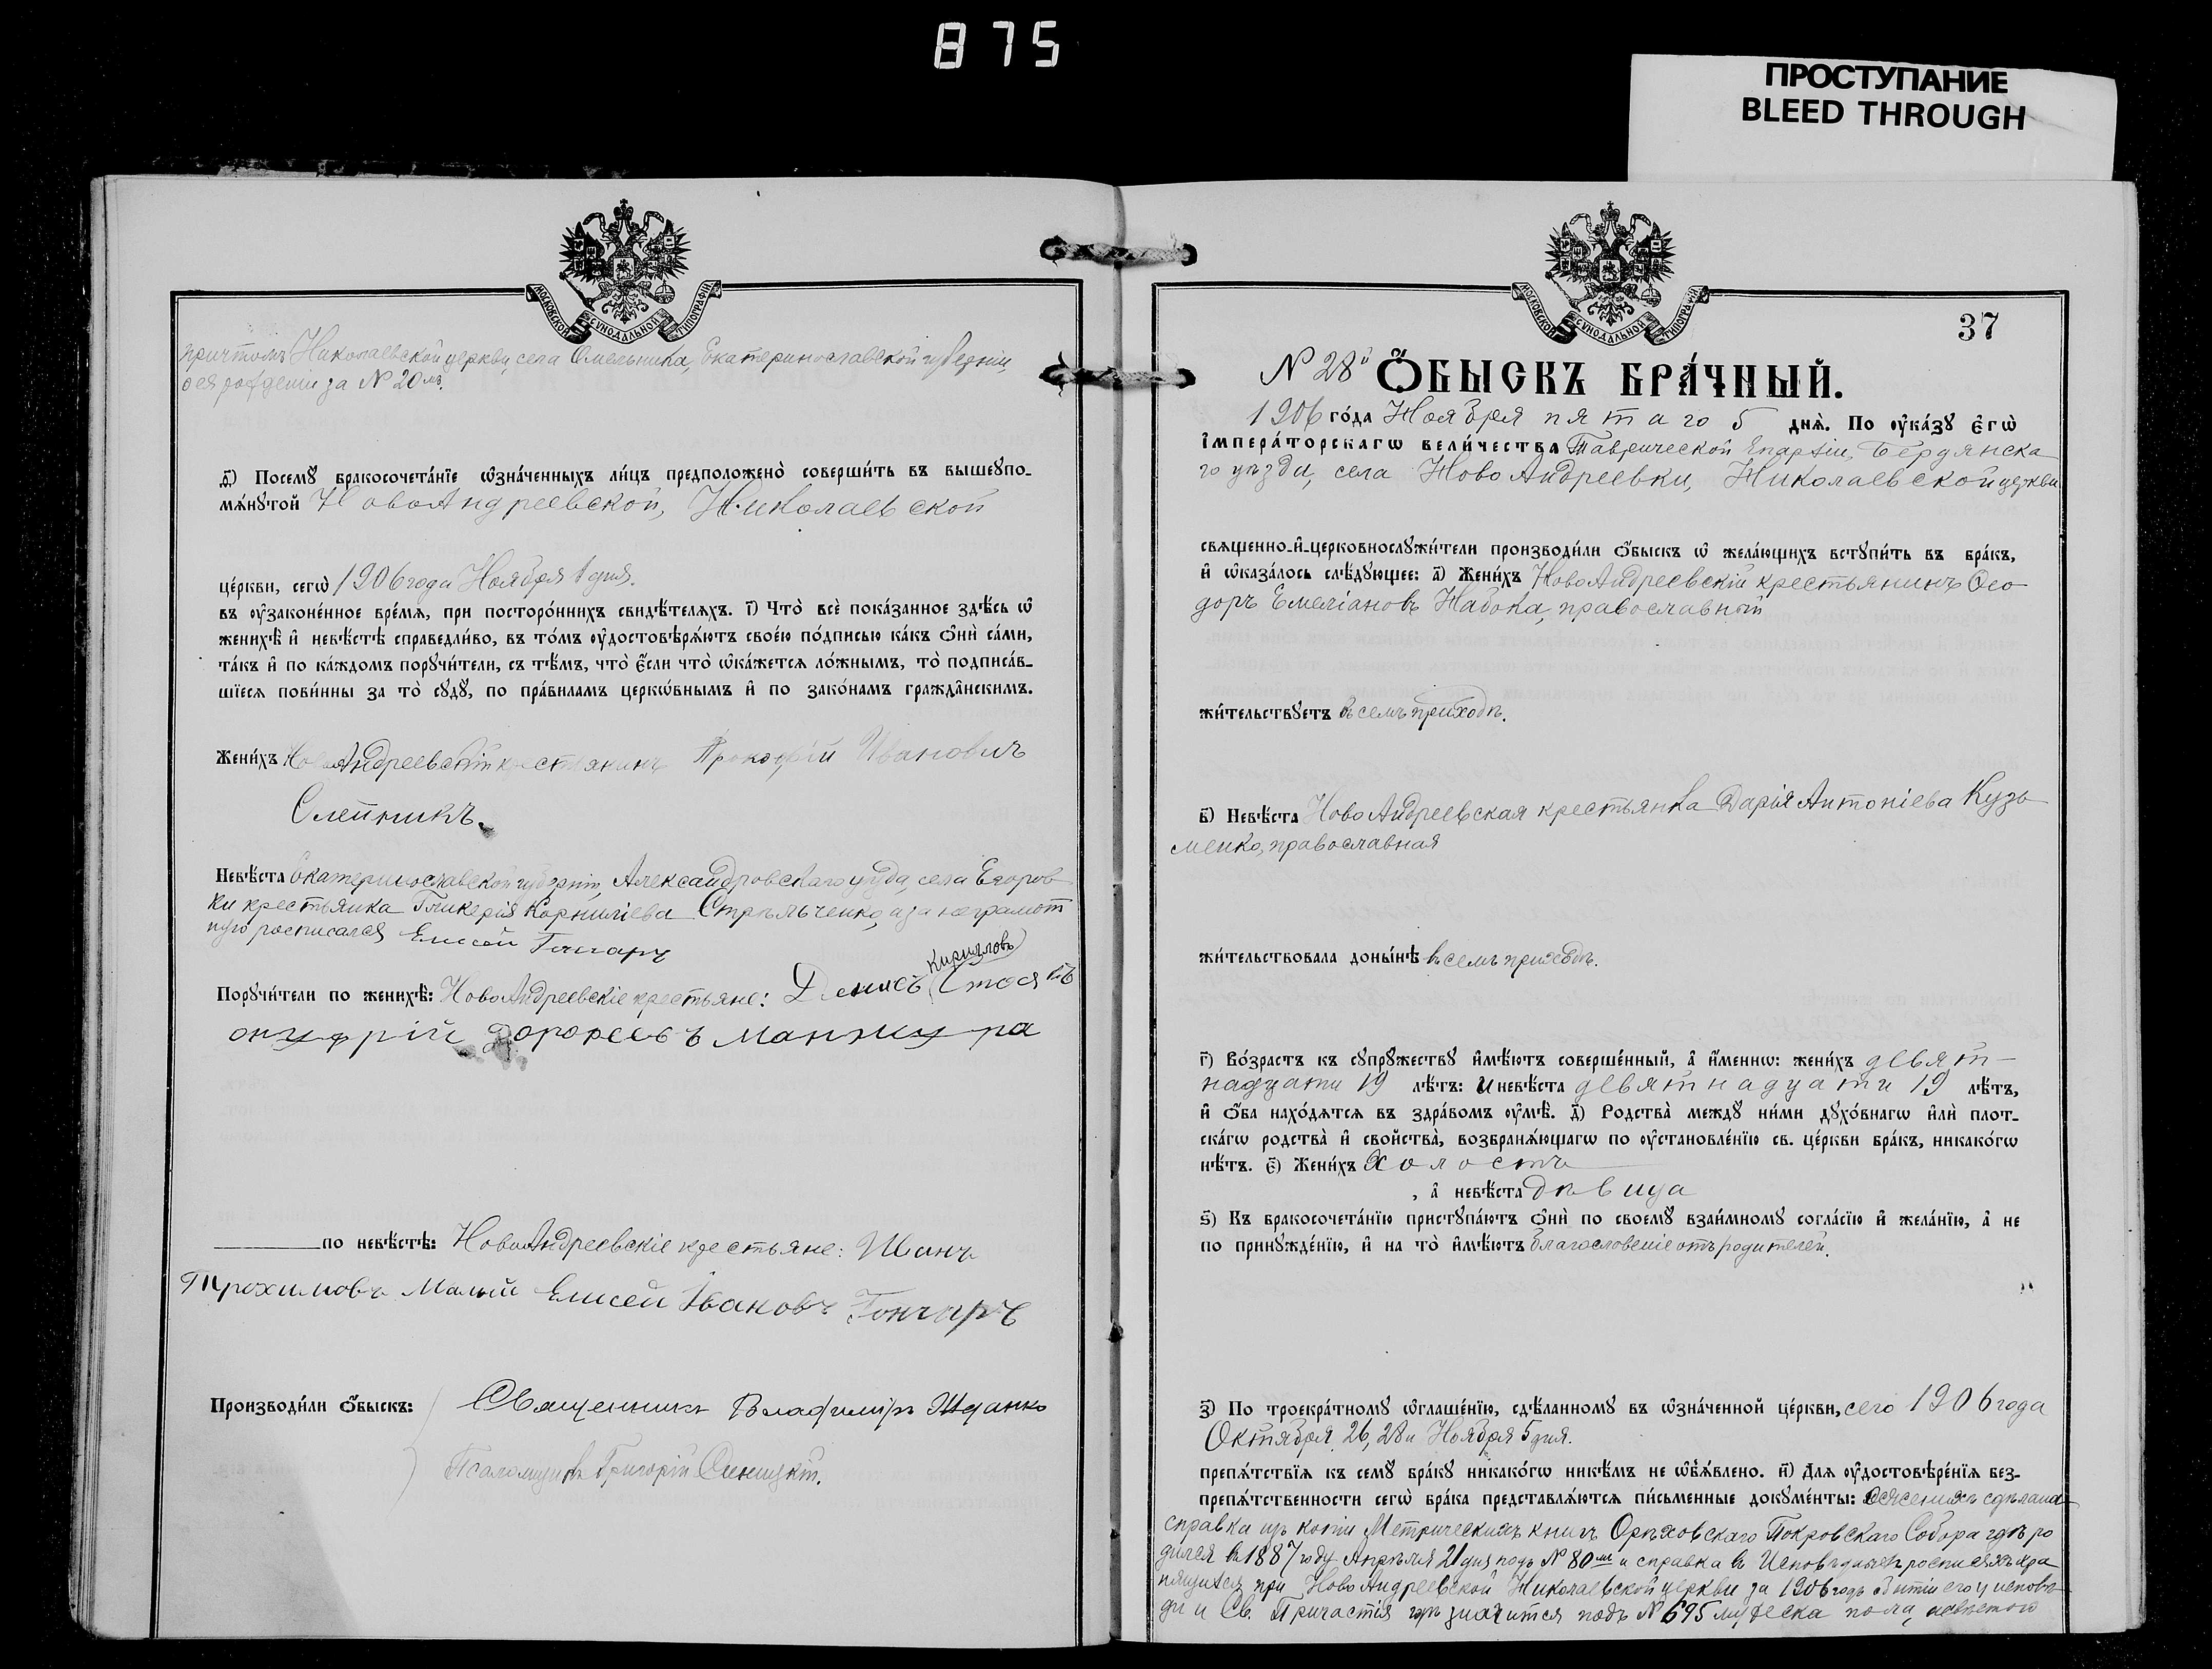 875
ПРОСТУПАНИЕ
BLEED THROUGH
МОСКОВСКОЙ СѴНОДАЛЬНОЙ ТИПОГРАФІИ
причтомъ Николаевской церкви, села Омельника, Екатеринославской губерніи,
о ея рожденіи за № 20мъ.
д҃) Посемꙋ бракосочета́нїе ѡ҆зна́ченныхъ ли́цъ предположено̀ соверши́ть въ вышеꙋпо-
мѧ́нꙋтой НовоАндреевской, Николаевской
це́ркви, сегѡ̀ 1906 года Ноября 1 дня.
въ ᲂу҆зако́ненное вре́мѧ, при посторо́ннихъ свидѣ́телѧхъ. і҃) Что̀ всѐ пока́занное здѣ́сь ѡ҆
женихѣ̀ и҆ невѣ́стѣ справедли́во, въ то́мъ ᲂу҆достовѣрѧ́ютъ свое́ю по́дписью ка́къ ѻ҆нѝ са́ми,
та́къ и҆ по ка́ждомъ порꙋчи́тели, съ тѣ́мъ, что̀ є҆́сли что̀ ѡ҆ка́жетсѧ ло́жнымъ, то̀ подписа́в-
шїесѧ пови́нны за то̀ сꙋдꙋ̀, по пра́виламъ церкѡ́внымъ и҆ по зако́намъ гражда̑нскимъ.
Жени́хъ НовоАндреевскій крестьянинъ Прокофій Ивановичъ
Слепникъ.
Невѣ́ста Екатеринославской губерніи, Александровскаго уѣзда, села Егоров
ки крестьянка Гликерія Корниліева Стрѣльченко, а за неграмот
ную росписался Елисей Гончаръ
Порꙋчи́тели по женихѣ̀: НовоАндреевскіе крестьяне: Денисъ Кириловъ
онуфрій дорофеевъ манжура
по невѣ́стѣ: НовоАндреевскіе крестьяне: Иванъ
Трохимовъ Малый Елисей Івановъ Гончаръ
Производи́ли ѻ҆́быскъ: Священникъ Владиміръ Жданко
Псаломщикъ Григорій Синицкій.
МОСКОВСКОЙ СѴНОДАЛЬНОЙ ТИПОГРАФІИ
37
№ 28й Ѻ҆́БЫСКЪ БРА́ЧНЫЙ.
1906 го́да Ноября пятаго 5 днѧ̀. По ᲂу҆ка́зꙋ є҆гѡ̀
і҆мпера́торскагѡ вели́чества Таврической Епархіи, Бердянска
го уѣзда, села НовоАндреевки, Николаевской церкви
свѧщенно-и҆-церковнослꙋжи́тели производи́ли ѻ҆́быскъ ѡ҆ жела́ющихъ встꙋпи́ть въ бра́къ,
и҆ ѡ҆каза́лось слѣ́дꙋющее: а҃) Жени́хъ НовоАндреевскій крестьянинъ Ѳео
доръ Емеліановъ Набока, православный
жи́тельствꙋетъ въ семъ приходѣ.
в҃) Невѣ́ста НовоАндреевская крестьянка Дарія Антоніева Кузь
менко, православная
жи́тельствовала доны́нѣ въ семъ приходѣ.
г҃) Во́зрастъ къ сꙋпрꙋ́жествꙋ и҆мѣ́ютъ соверше́нный, а҆ и҆́меннѡ: жени́хъ девят-
надцати 19 лѣ́тъ: и невѣ́ста девятнадцати 19 лѣ́тъ,
и҆ ѻ҆́ба нахо́дѧтсѧ въ здра́вомъ ᲂу҆мѣ̀. д҃) Родства̀ междꙋ ни́ми дꙋхо́внагѡ и҆лѝ плот-
ска́гѡ родства̀ и҆ свойства̀, возбранѧ́ющагѡ по ᲂу҆становле́нїю св. це́ркви бра́къ, никако́гѡ
нѣ́тъ. є҃) Жени́хъ холостъ
, а҆ невѣ́ста дѣвица
ѕ҃) Къ бракосочета́нїю пристꙋпа́ютъ ѻ҆нѝ по своемꙋ̀ взаи́мномꙋ согла́сїю и҆ жела́нїю, а҆ не
по принꙋжде́нїю, и҆ на то̀ и҆мѣ́ютъ благословеніе отъ родителей.
з҃) По троекра́тномꙋ ѡ҆глаше́нїю, сдѣ́ланномꙋ въ ѡ҆зна́ченной це́ркви, сего 1906 года
Октября 26, 28 и Ноября 5 дня.
препѧ́тствїѧ къ семꙋ̀ бра́кꙋ никако́гѡ никѣ́мъ не ѡ҆б̾ѧ́влено. и҃) Длѧ ᲂу҆достовѣре́нїѧ без-
препѧ́тственности сегѡ̀ бра́ка представлѧ́ютсѧ пи́сьменные докꙋме́нты: О женихѣ сдѣлана
справка изъ копіи Метрическихъ книгъ Орѣховскаго Покровскаго Собора гдѣ ро
дился въ 1887 году Апрѣля 21 дня подъ № 80мъ и справка въ Исповѣдныхъ росписяхъ хра
нящихся при НовоАндреевской Николаевской церкви за 1906 годъ о бытіи его у исповѣ
ди и Св. Причастія гдѣ значится подъ № 695 мужеска пола, невѣстою